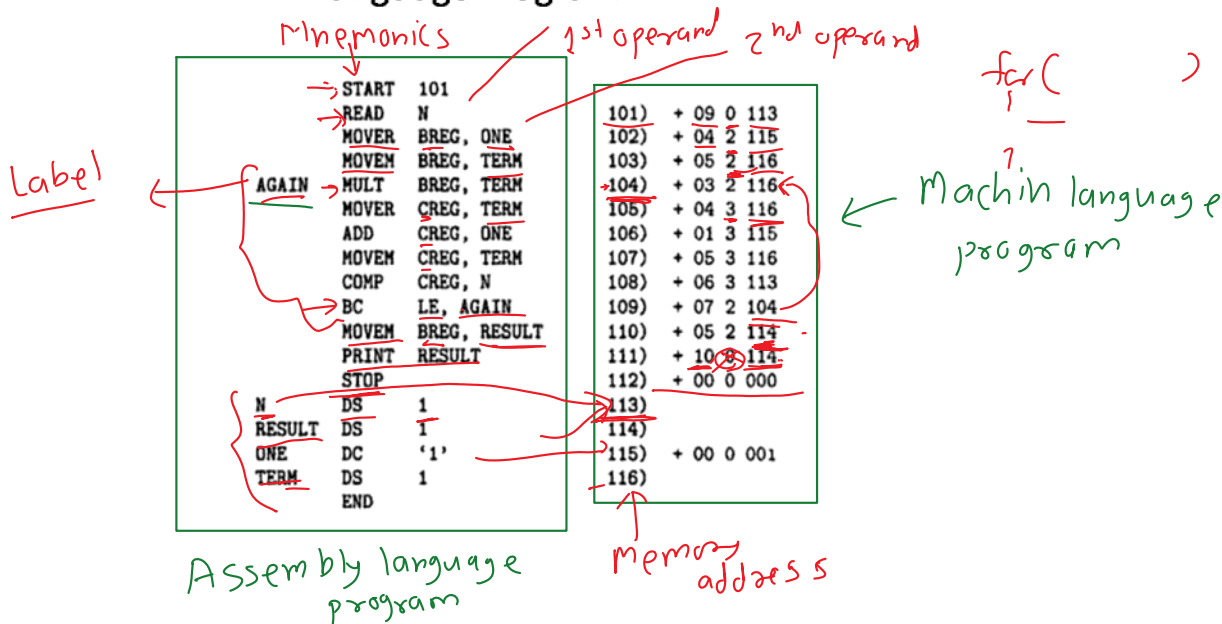 Mnemonics
1st operand
2nd operand
for( )
START 101
READ N
MOVER BREG, ONE
MOVEM BREG, TERM
AGAIN MULT BREG, TERM
MOVER CREG, TERM
ADD CREG, ONE
MOVEM CREG, TERM
COMP CREG, N
BC LE, AGAIN
MOVEM BREG, RESULT
PRINT RESULT
STOP
N DS 1
RESULT DS 1
ONE DC ‘1’
TERM DS 1
END
Label
101) + 09 0 113
102) + 04 2 115
103) + 05 2 116
104) + 03 2 116
105) + 04 3 116
106) + 01 3 115
107) + 05 3 116
108) + 06 3 113
109) + 07 2 104
110) + 05 2 114
111) + 10 0 114
112) + 00 0 000
113)
114)
115) + 00 0 001
116)
Machin language
program
Assembly language
program
Memory
address